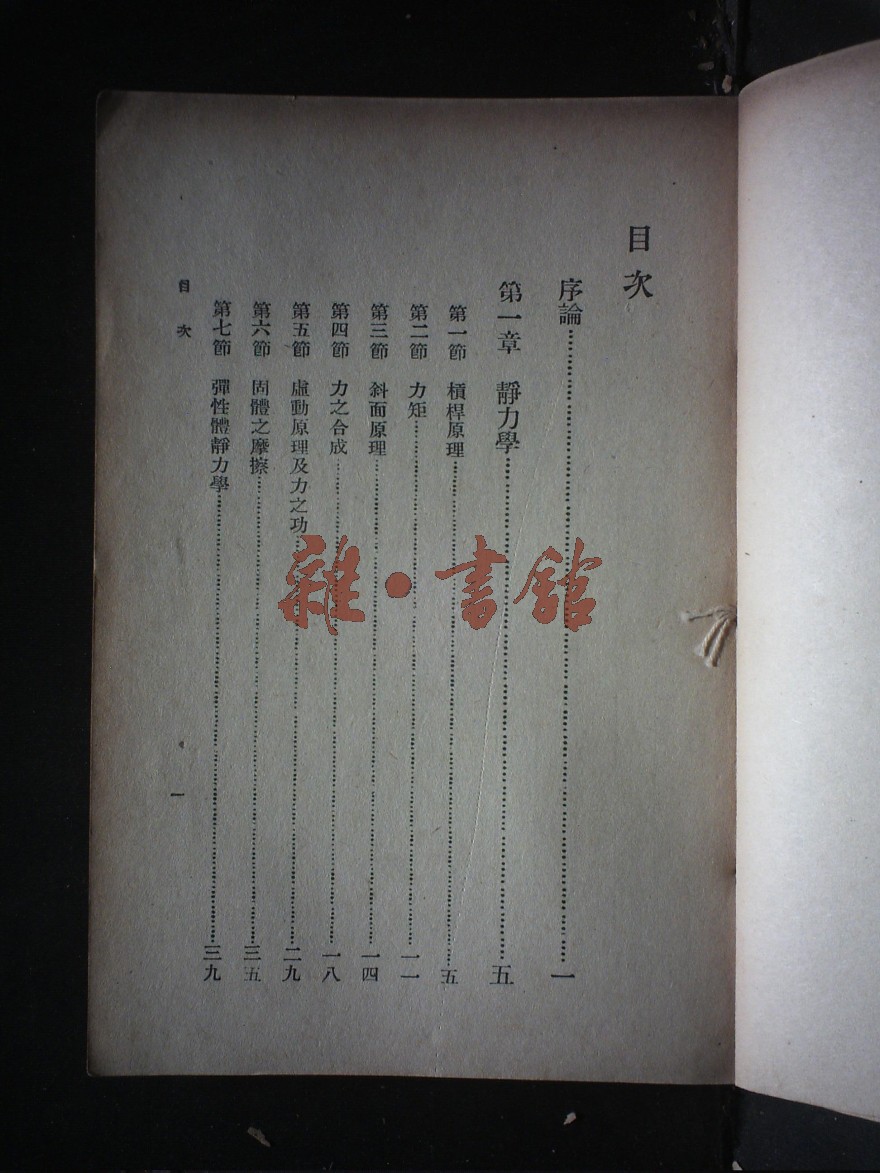 目次
序論……一
第一章　靜力學……五
第一節　槓桿原理……五
第二節　力矩……一一
第三節　斜面原理……一四
第四節　力之合成……一八
第五節　虛動原理及力之功……二九
第六節　固體之摩擦……三五
第七節　彈性體靜力學……三九
目次　一
雜·書館